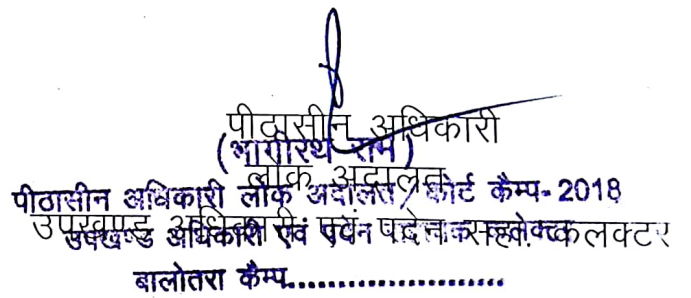 पीठासीन अधिकारी
(भागीरथ राम)
लोक अदालत
पीठासीन अधिकारी लोक अदालत / कोर्ट कैम्प- 2018
उपखण्ड अधिकारी एवं पदेन सहा. कलक्टर
उपखण्ड अधिकारी एवं पदेन
बालोतरा कैम्प....................